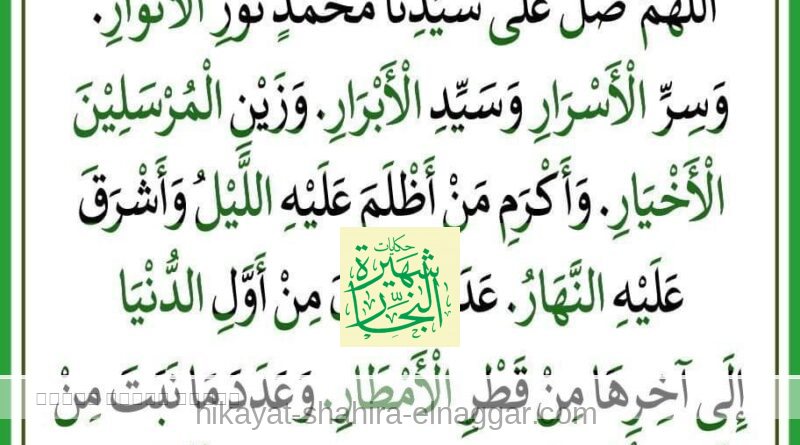 اللَّهُمَّ صَلِّ عَلَى سَيِّدِنَا مُحَمَّدٍ نُورِ الْأَنْوَارِ.
وَسِرِّ الْأَسْرَارِ وَسَيِّدِ الْأَبْرَارِ. وَزَيْنِ الْمُرْسَلِيْنَ
الْأَخْيَارِ. وَأَكْرَمِ مَنْ أَظْلَمَ عَلَيْهِ اللَّيْلُ وَأَشْرَقَ
حكايات
شهيرة
النجار
عَلَيْهِ النَّهَارُ. مِنْ أَوَّلِ الدُّنْيَا
إِلَى آخِرِهَا مِنْ قَطْرِ الْأَمْطَارِ. وَعَدَدَ مَا نَبَتَ مِنْ
hikayat-shahira-elnaggar.com